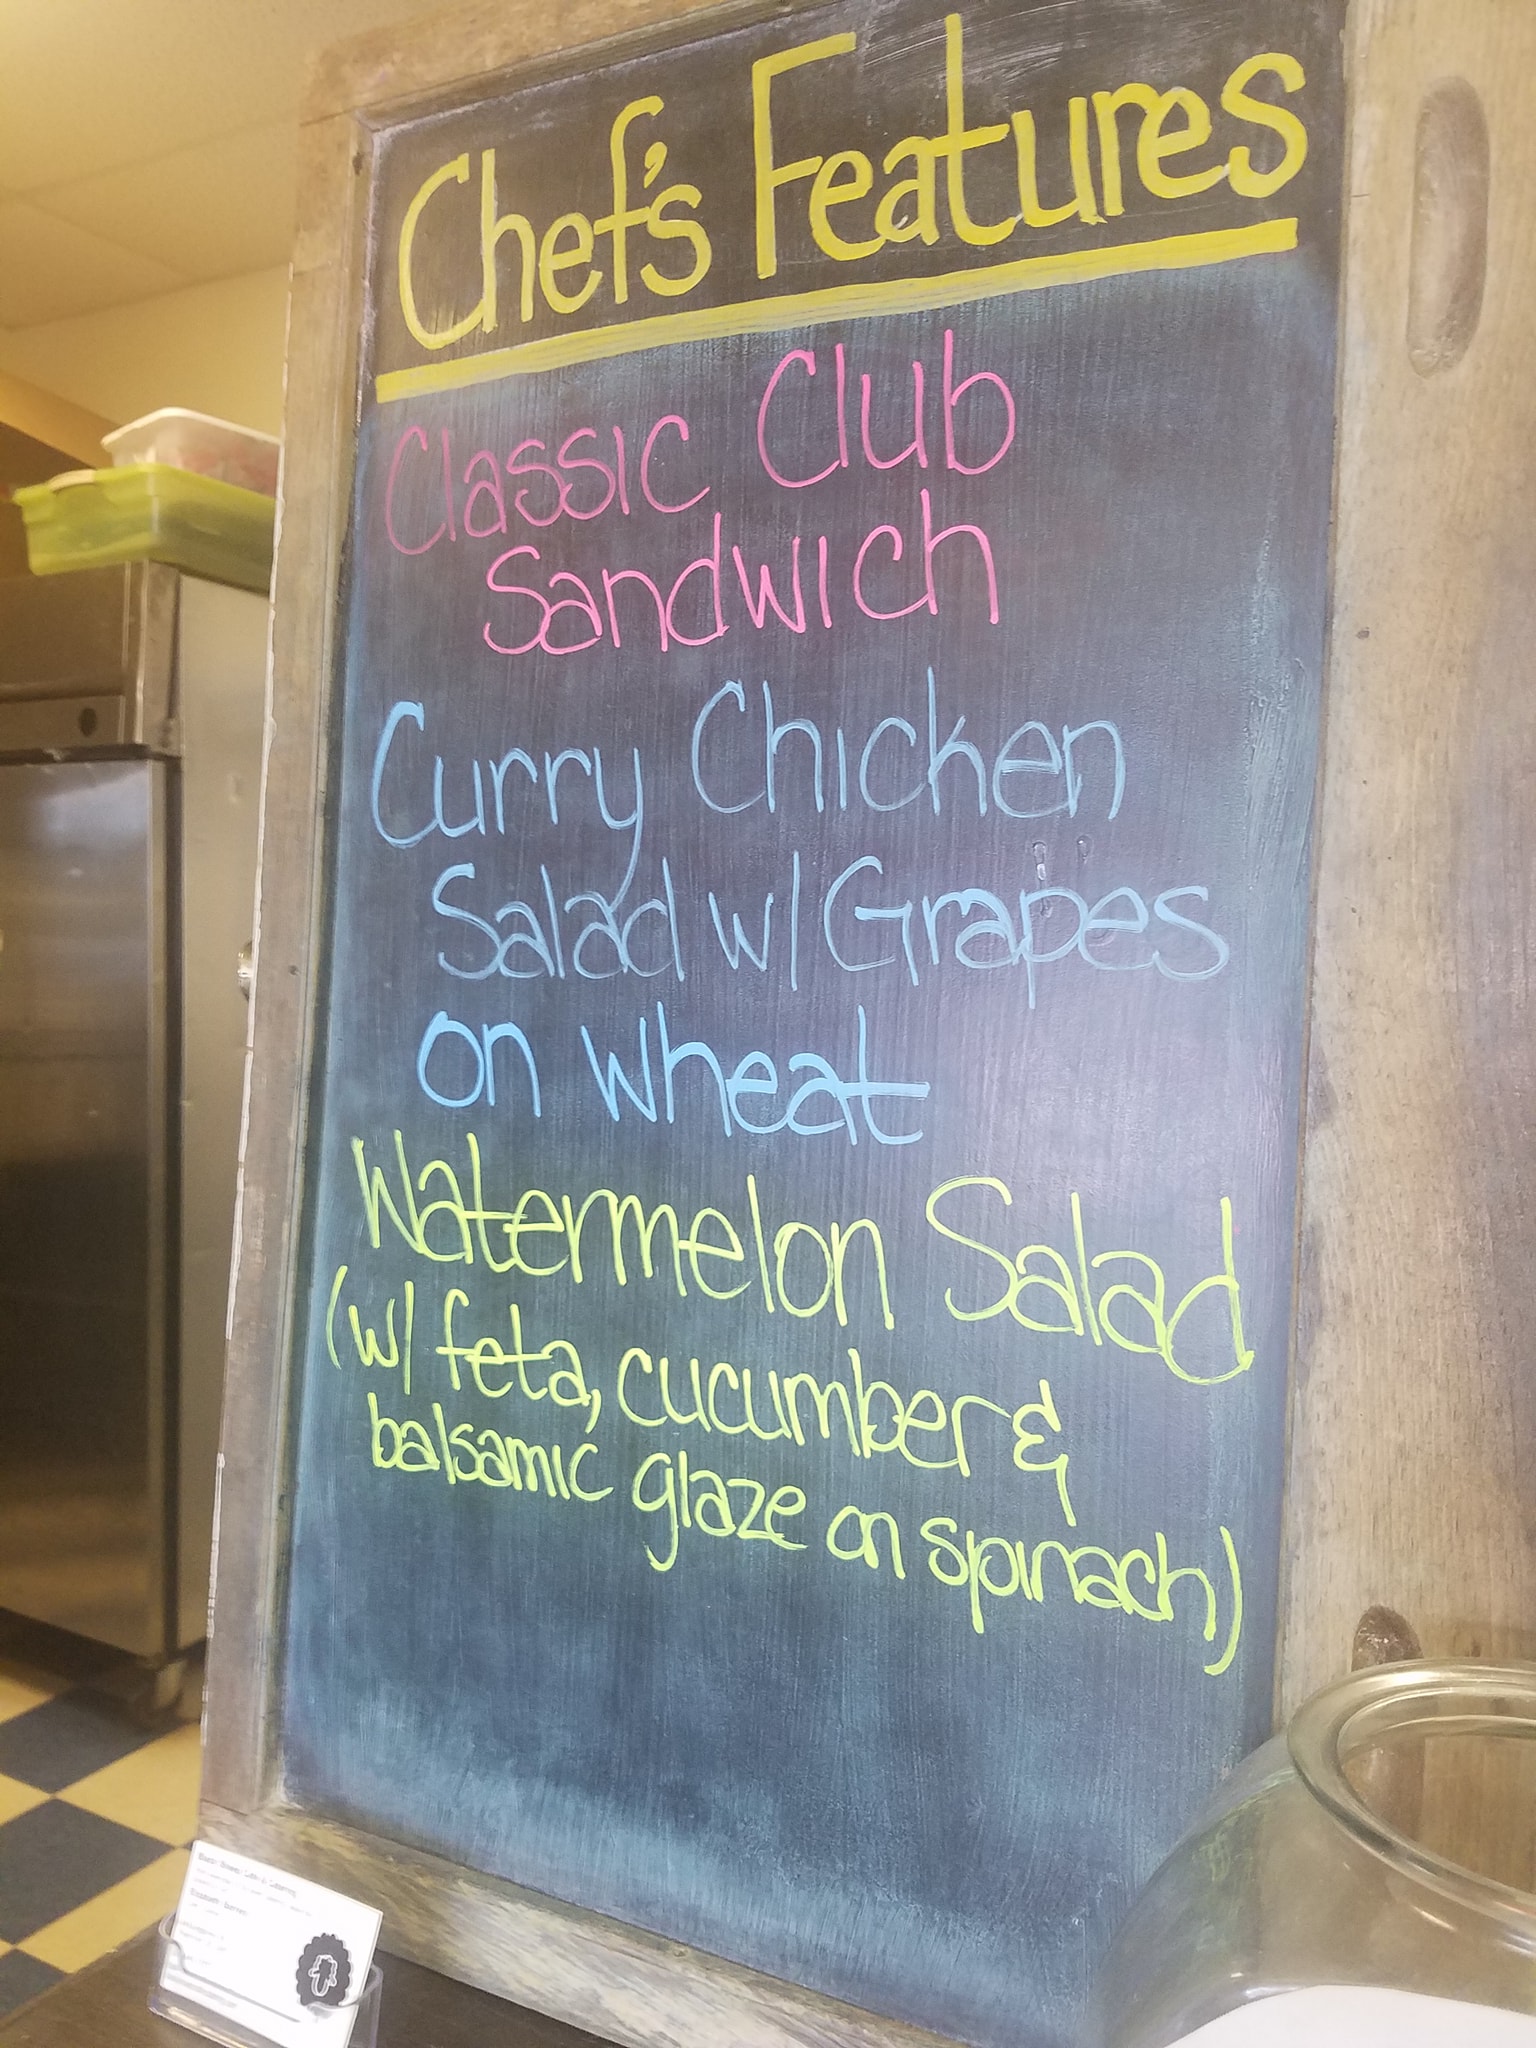 Chef's Features
Classic Club
Sandwich
Curry Chicken
Salad w/ Grapes
on wheat
Watermelon Salad
(w/ feta, cucumber &
balsamic glaze on spinach)